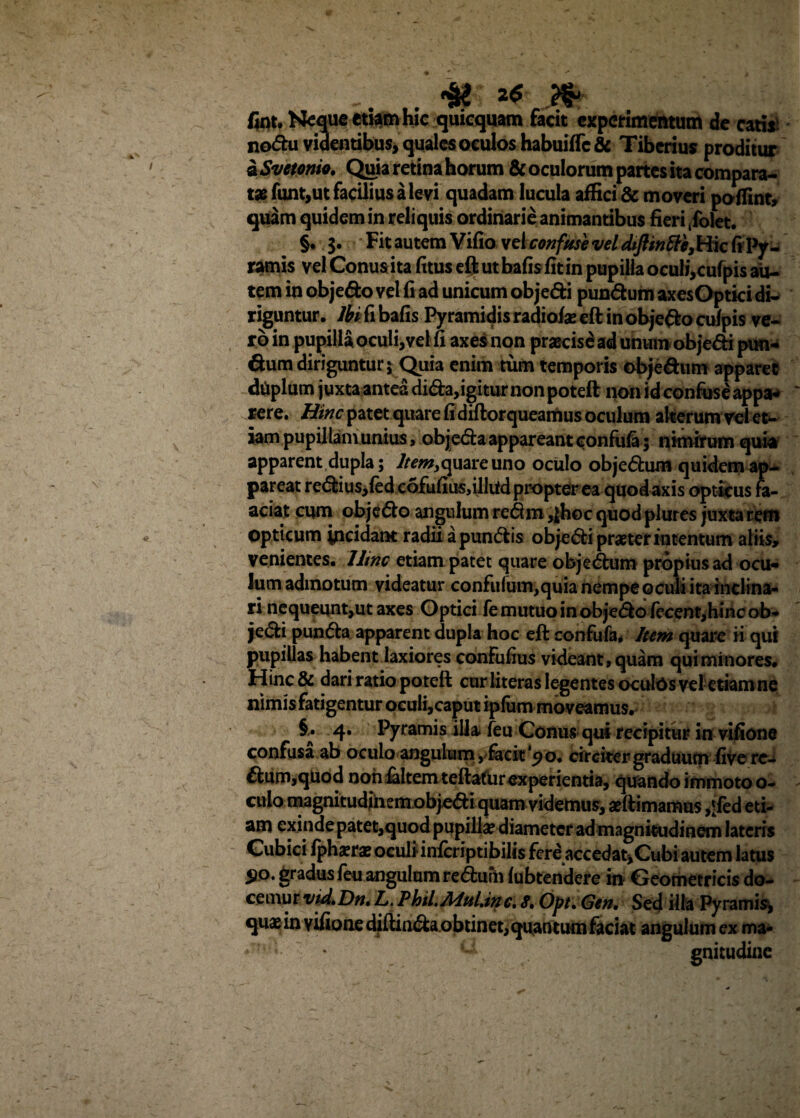 26
ſint. Neque etiam hic quicquam facit experimentum de catis
noctu videntibus, quales oculos habuiſſe & Tiberius proditur
à Svetonio. Quia retina horum & oculorum partes ita compara-
tæ ſunt, ut facilius à levi quadam lucula affici & moveri poſſint,
quàm quidem in reliquis ordinariè animantibus fieri ſolet.
§. 3. Fit autem Viſio vel confusè vel diſtinctè, Hic ſi Py-
ramis vel Conus ita ſitus eſt ut baſis ſit in pupilla oculi, cuſpis au-
tem in objecto vel ſi ad unicum objecti punctum axes Optici di-
riguntur. Ibi ſi baſis Pyramidis radioſæ eſt in objecto cuſpis ve-
rò in pupillâ oculi, vel ſi axes non præcisè ad unum objecti pun-
ctum diriguntur; Quia enim tùm temporis objectum apparet
duplum juxta anteà dicta, igitur non poteſt non id confusè appa-
rere. Hinc patet quare ſi diſtorqueamus oculum alterum vel et-
iam pupillam unius, objecta appareant confuſa; nimirum quia
apparent dupla; Item, quare uno oculo objectum quidem ap-
pareat rectius, ſed cõfuſius, illud propter ea quod axis opticus fa-
aciat cum objecto angulum rectũ, hoc quod plures juxta rem
opticum incidant radii à punctis objecti præter intentum aliis,
venientes. Hinc etiam patet quare objectum propius ad ocu-
lum admotum videatur confuſum, quia nempe oculi ita inclina-
ri nequeunt, ut axes Optici ſe mutuo in objecto ſecent, hinc ob-
jecti puncta apparent dupla hoc eſt confuſa. Item quare ii qui
pupillas habent laxiores confuſius videant, quàm qui minores.
Hinc & dari ratio poteſt cur literas legentes oculos vel etiam ne
nimis fatigentur oculi, caput ipſum moveamus.
§. 4. Pyramis illa ſeu Conus qui recipitur in viſione
confusâ ab oculo angulum, facit 90. circiter graduum ſive re-
ctum, quod non ſaltem teſtatur experientia, quando immoto o-
culo magnitudinem objecti quam videmus, æſtimamus, ſed eti-
am exinde patet, quod pupillæ diameter ad magnitudinem lateris
Cubici ſphæræ oculi inſcriptibilis ferè accedat, Cubi autem latus
90. gradus ſeu angulum rectum ſubtendere in Geometricis do-
cemur vid. Dn. L. Phil. Mul. in c. 8. Opt. Gen. Sed illa Pyramis,
quæ in viſione diſtincta obtinet, quantum faciat angulum ex ma-
gnitudine